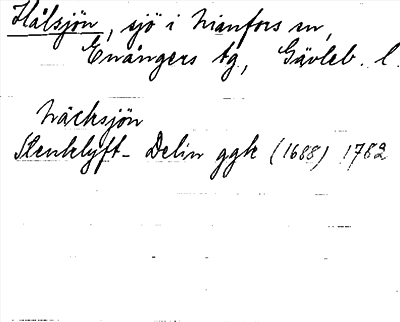 Hålsjön, sjö i Nianfors sn,
Enångers tg, Gävleb. l.
Näcksjön
Stenklyft- Delin ggk (1688) 1782